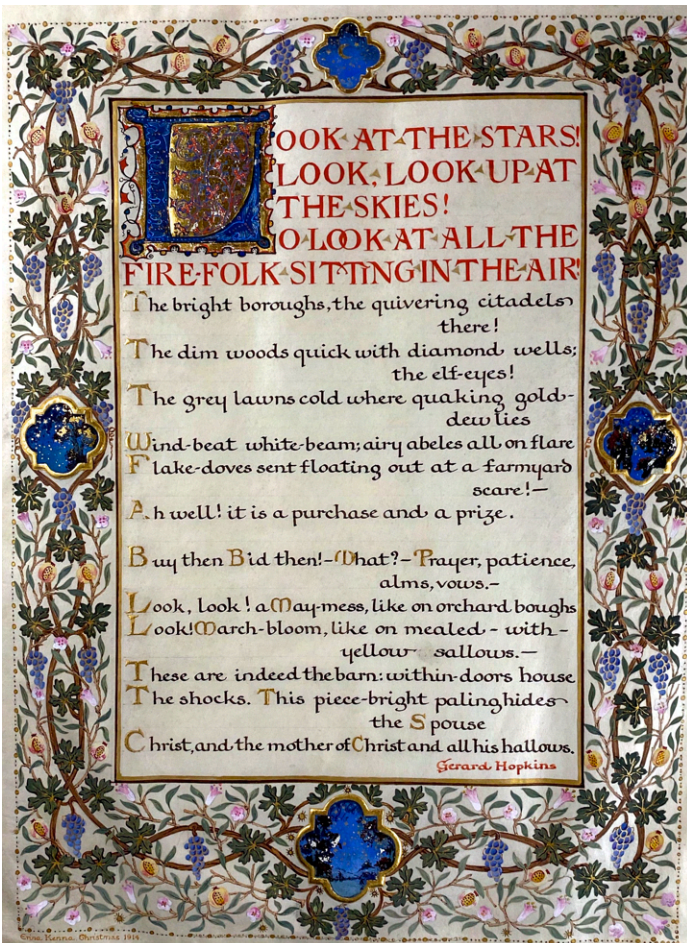 LOOK AT THE STARS!
LOOK, LOOK UP AT
THE SKIES!
O LOOK AT ALL THE
FIRE-FOLK SITTING IN THE AIR!
The bright boroughs, the quivering citadels
there!
The dim woods quick with diamond wells;
the elf-eyes!
The grey lawns cold where quaking gold-
dew lies
Wind-beat white-beam; airy abeles all on flare
Flake-doves sent floating out at a farmyard
scare!—
Ah well! it is a purchase and a prize.
Buy then Bid then!-What?-Prayer, patience,
alms, vows.-
Look, look! a May-mess, like on orchard boughs
Look! March-bloom, like on mealed-with-
yellow sallows.—
These are indeed the barn: within-doors house
The shocks. This piece-bright paling hides
the Spouse
Christ, and the mother of Christ and all his hallows.
Gerard Hopkins
Christmas 1914